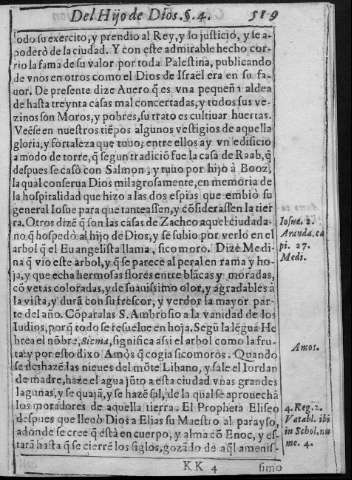 Del Hijo de Dios. §. 4. 519
todo su exercito, y prendio al Rey, y lo justició, y se a-
poderò de la ciudad. Y con este admirable hecho cor-
rio la fama de su valor por toda Palestina, publicando
de vnos en otros como el Dios de Israël era en su fa-
uor. De presente dize Auero q̃ es vna pequeña aldea
de hasta treynta casas mal concertadas, y todos sus ve-
zinos son Moros, y pobres, su trato es cultiuar huertas.
Veése en nuestros tiẽpos algunos vestigios de aquella
gloria, y fortaleza que tuuo, entre ellos ay vn edificio
a modo de torre, q̃ segun tradiciõ fue la casa de Raab, q̃
despues se casò con Salmon, y tuuo por hijo à Booz,
la qual conserua Dios milagrosamente, en memoria de
la hospitalidad que hizo a las dos espias que embiò su
general Iosue para que tanteassen, y cõsiderassen la tier
ra. Otros dizẽ q̃ son las casas de Zacheo aquel ciudada-
no q̃ hospedò al hijo de Dios, y se subio por verlo en el
arbol q̃ el Euangelista llama, sicomoro. Dize Medi-
na q̃ vio este arbol, y q̃ se parece al peral en rama y ho-
ja, y que echa hermosas flores entre blãcas y moradas,
cõ vetas coloradas, y de suauissimo olor, y agradables à
la vista, y dura con su frescor, y verdor la mayor par-
te del año. Cõparalas S. Ambrosio a la vanidad de los
Iudios, porq̃ todo se resuelue en hoja. Segũ la lẽgua He
brea el nõbre, Sicma, significa assi el arbol como la fru-
ta, y por esto dixo Amòs q̃ cogia sicomoros. Quando
se deshazẽ las nieues del mõte Libano, y sale el Iordan
de madre, haze el agua jũto a esta ciudad vnas grandes
lagunas, y se quajã, y se hazẽ sal, de la qual se aprouechã
los moradores de aquella tierra. El Propheta Eliseo
despues que lleuò Dios a Elias su Maestro al parayso,
adonde se cree q̃ està en cuerpo, y alma cõ Enoc, y es-
tarã hasta q̃ se cierrẽ los siglos, gozãdo de aq̃l amenis-
KK 4 simo
Iosue. 2.
pi. 27.
Medi.
Amos.
4. Reg. 2.
Vatabl. ibi
in Schol. nu
me. 4.